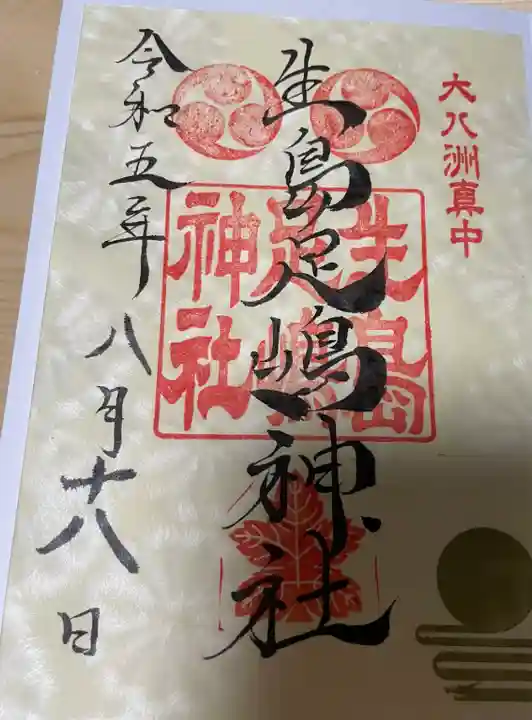 大八洲真中
生島足嶋神社
生島
足嶋
神社
令和五年八月十八日